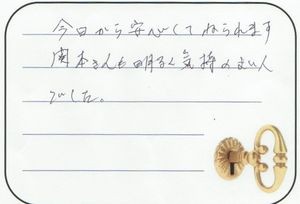 今日から安心してねられます
関本さんも明るく気持のよい人
でした。